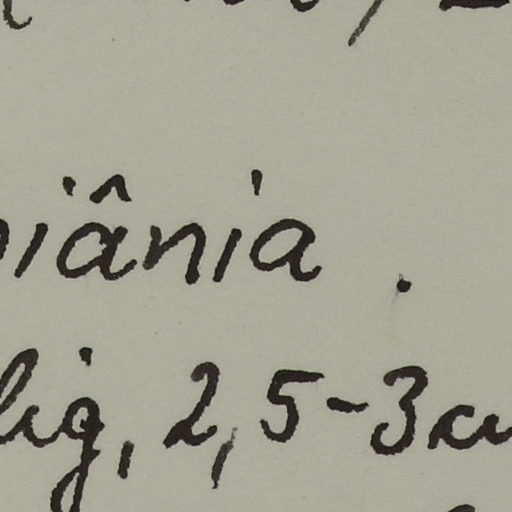 iânia.
lig, 2,5-3cm